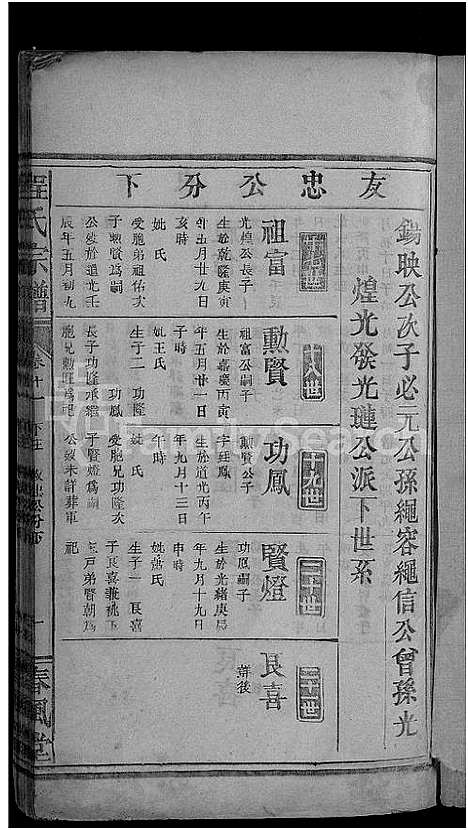 友忠公分下
錫映公次子必元公孫繩容繩信公曾孫光
煌光發光璉公派下世系
十七世
祖富
光煌公長子
生於乾隆庚寅
年五月廿九日
亥時
妣 氏
受胞弟祖佑次
子勳賢爲嗣
公歿於道光壬
辰年五月初九
十八世
勳賢
祖富公嗣子
生於嘉慶丙寅
年五月廿一日
妣王氏
生子二 功隆
功鳳
長子功隆承繼
胞兄勳
十九世
功鳳
勳賢公子
字廷鳳
生於道光丙午
年九月十三日
午時
妣 氏
受胞兄功隆次
子賢燈爲嗣
公歿未詳葬軍
二十世
賢燈
功鳳嗣子
生於光緒庚辰
年九月十九日
申時
妣蕭氏
生子一 艮喜
子艮喜兼祧五
戶弟賢朝爲
祀
二十一世
艮喜
缾後
程氏宗譜
卷十一
春風堂
FamilySearch